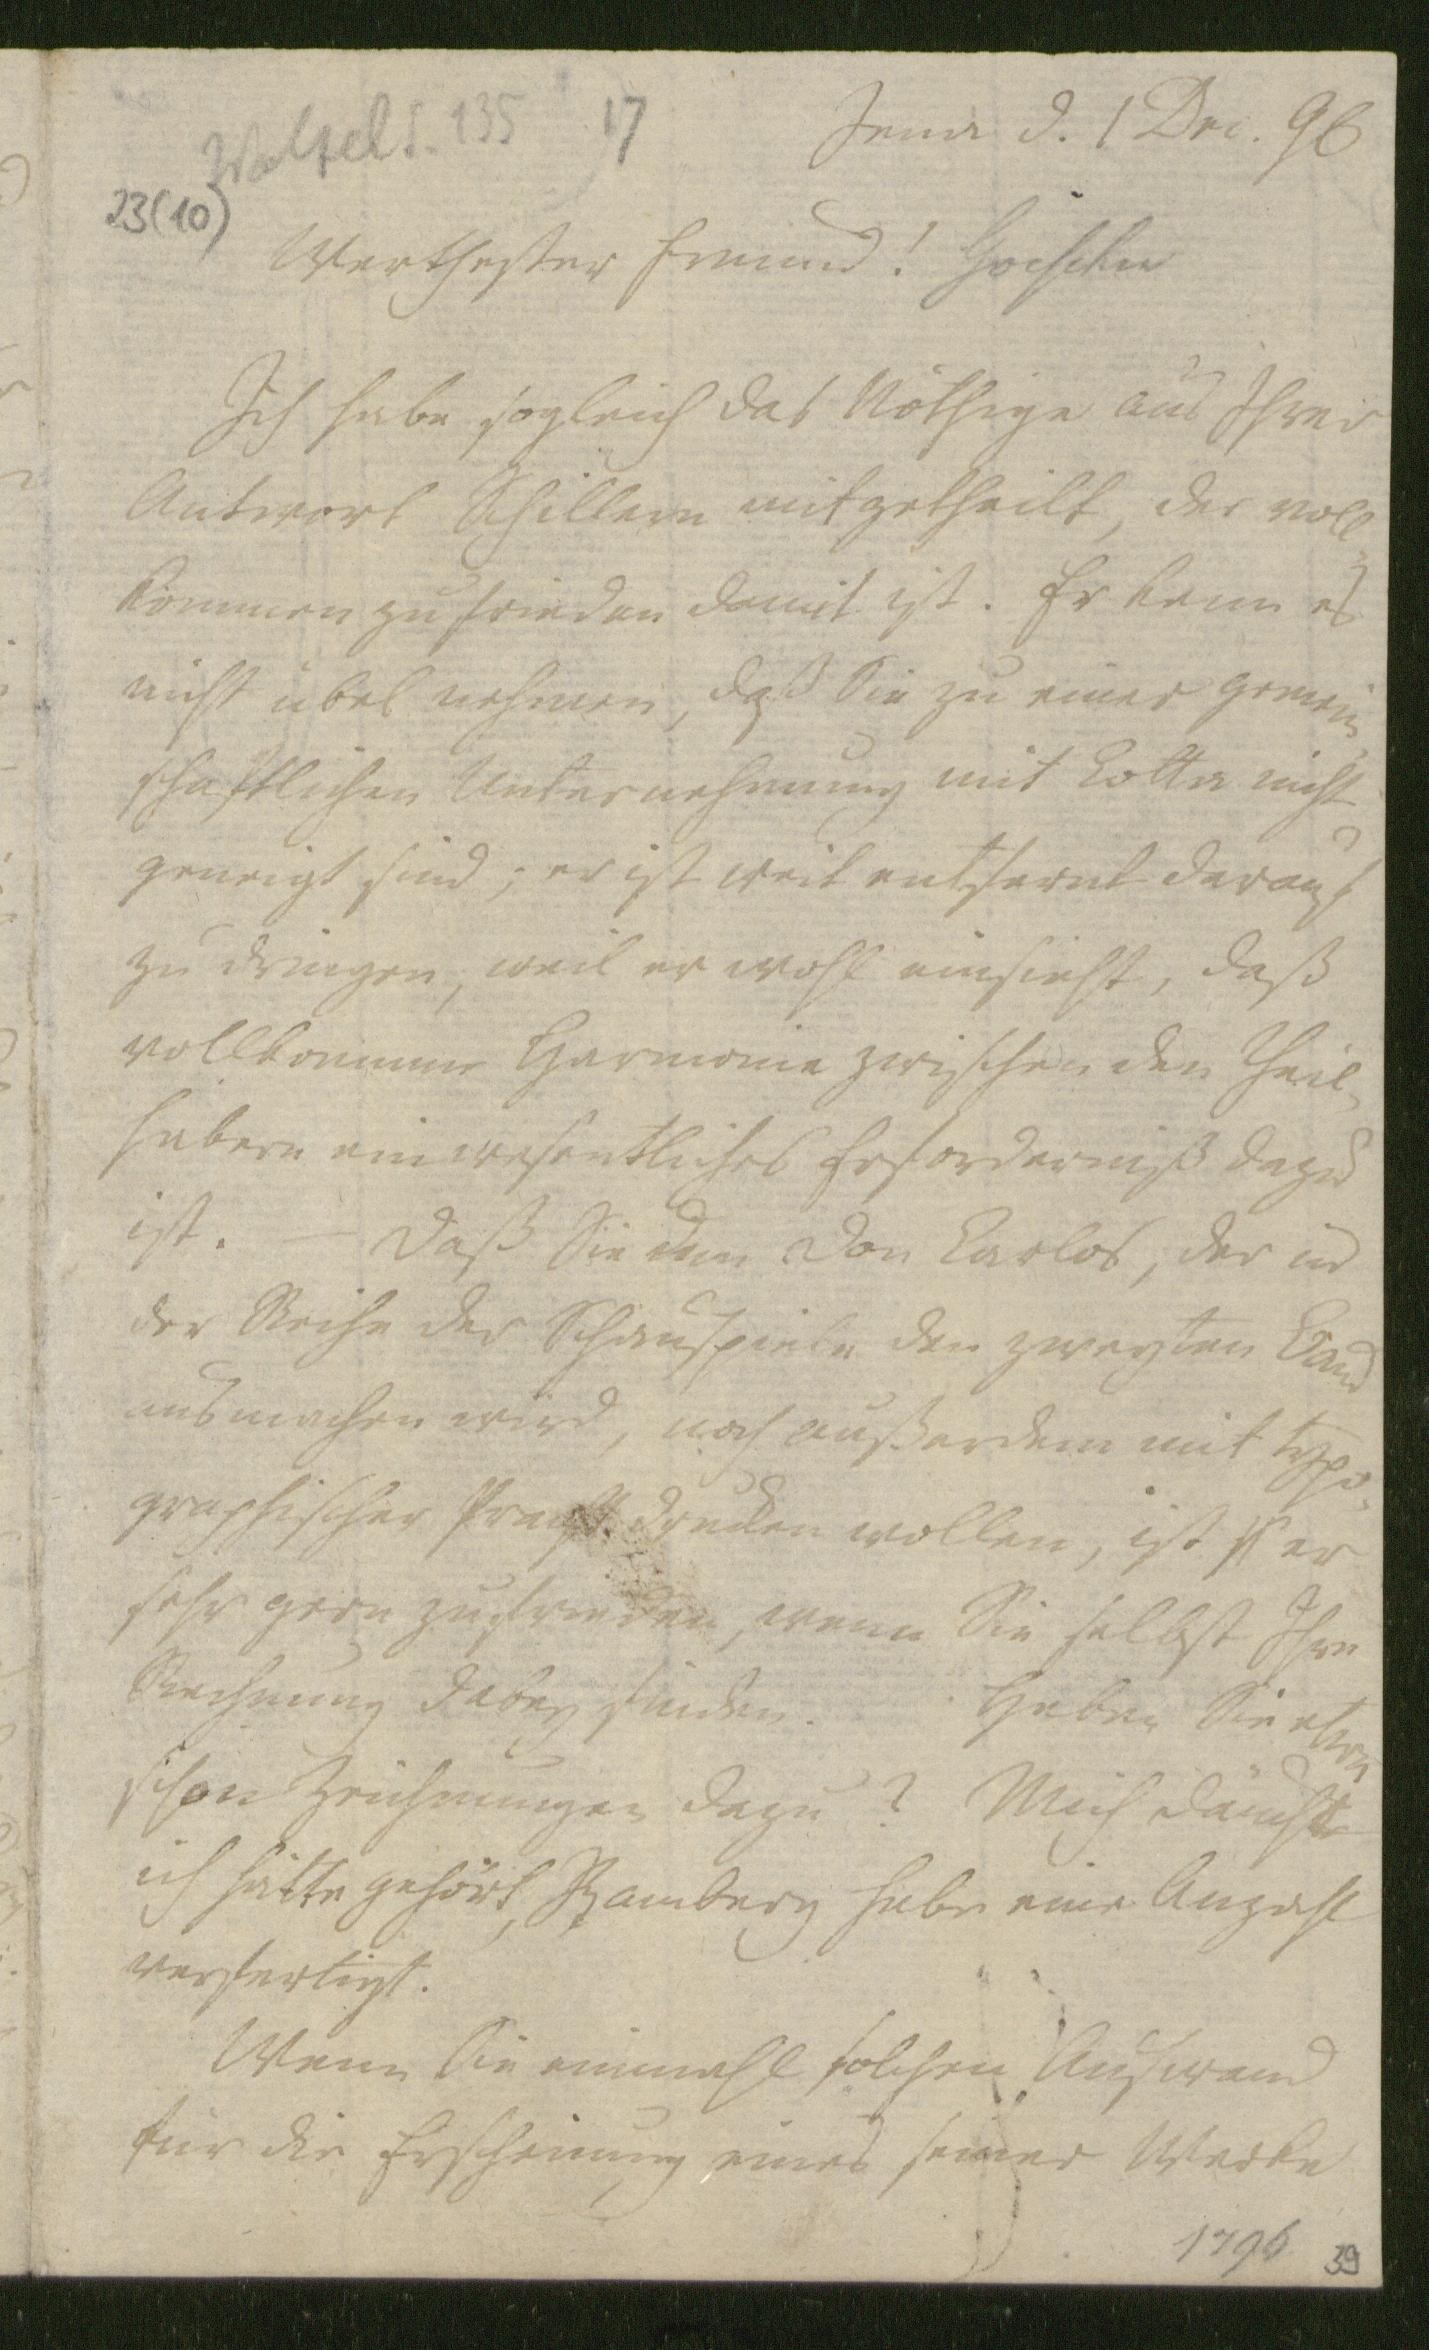 Walzel S. 135 17 Jena d. 1 Dec. 96
23(10)
Werthester Freund! Göschen
Ich habe sogleich das Nöthige aus Ihrer
Antwort Schillern mitgetheilt, der voll-
kommen zufrieden damit ist. Er kann es
nicht übel nehmen, daß Sie zu einer gemein-
schaftlichen Unternehmung mit Cotta nicht
geneigt sind; er ist weit entfernt darauf
zu dringen, weil er wohl einsieht, daß
vollkommne Harmonie zwischen den Theil-
habern ein wesentliches Erforderniß dazu
ist. — Daß Sie den Don Carlos, der in
der Reihe der Schauspiele den zweyten Band
ausmachen wird, noch außerdem mit typo-
graphischer Pracht drucken wollen, ist er
sehr gern zufrieden, wenn Sie selbst Ihre
Rechnung dabey finden. Haben Sie etwa
schon Zeichnungen dazu? Mich däucht
ich hätte gehört, Ramberg habe eine Anzahl
verfertigt.
Wenn Sie einmahl solchen Aufwand
für die Erscheinung eines seiner Werke
1796 39